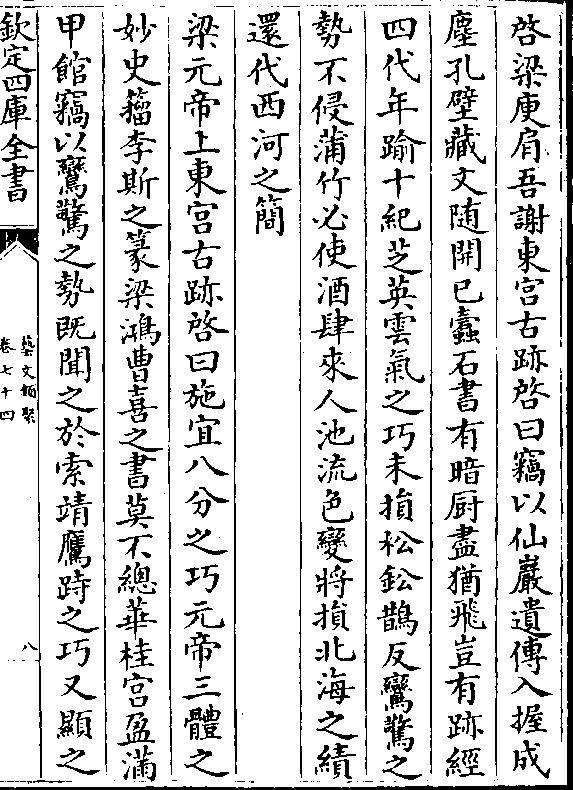 啓梁庾肩吾謝東宮古跡啓曰竊以仙巖遺傳入握成
塵孔壁藏文随開已蠹石書有暗厨畫猶飛豈有跡經
四代年踰十紀芝英雲氣之巧未損松鈆鵲反鸞驚之
勢不侵蒲竹必使酒肆來人池流色變將損北海之績
還代西河之簡
梁元帝上東宮古跡啓曰施宜八分之巧元帝三體之
妙史籀李斯之篆梁鴻曹喜之書莫不總華桂宮盈滿
甲館竊以鸞驚之勢既聞之於索靖鷹跱之巧又顯之
欽定四庫全書
藝文類聚
卷七十四
八